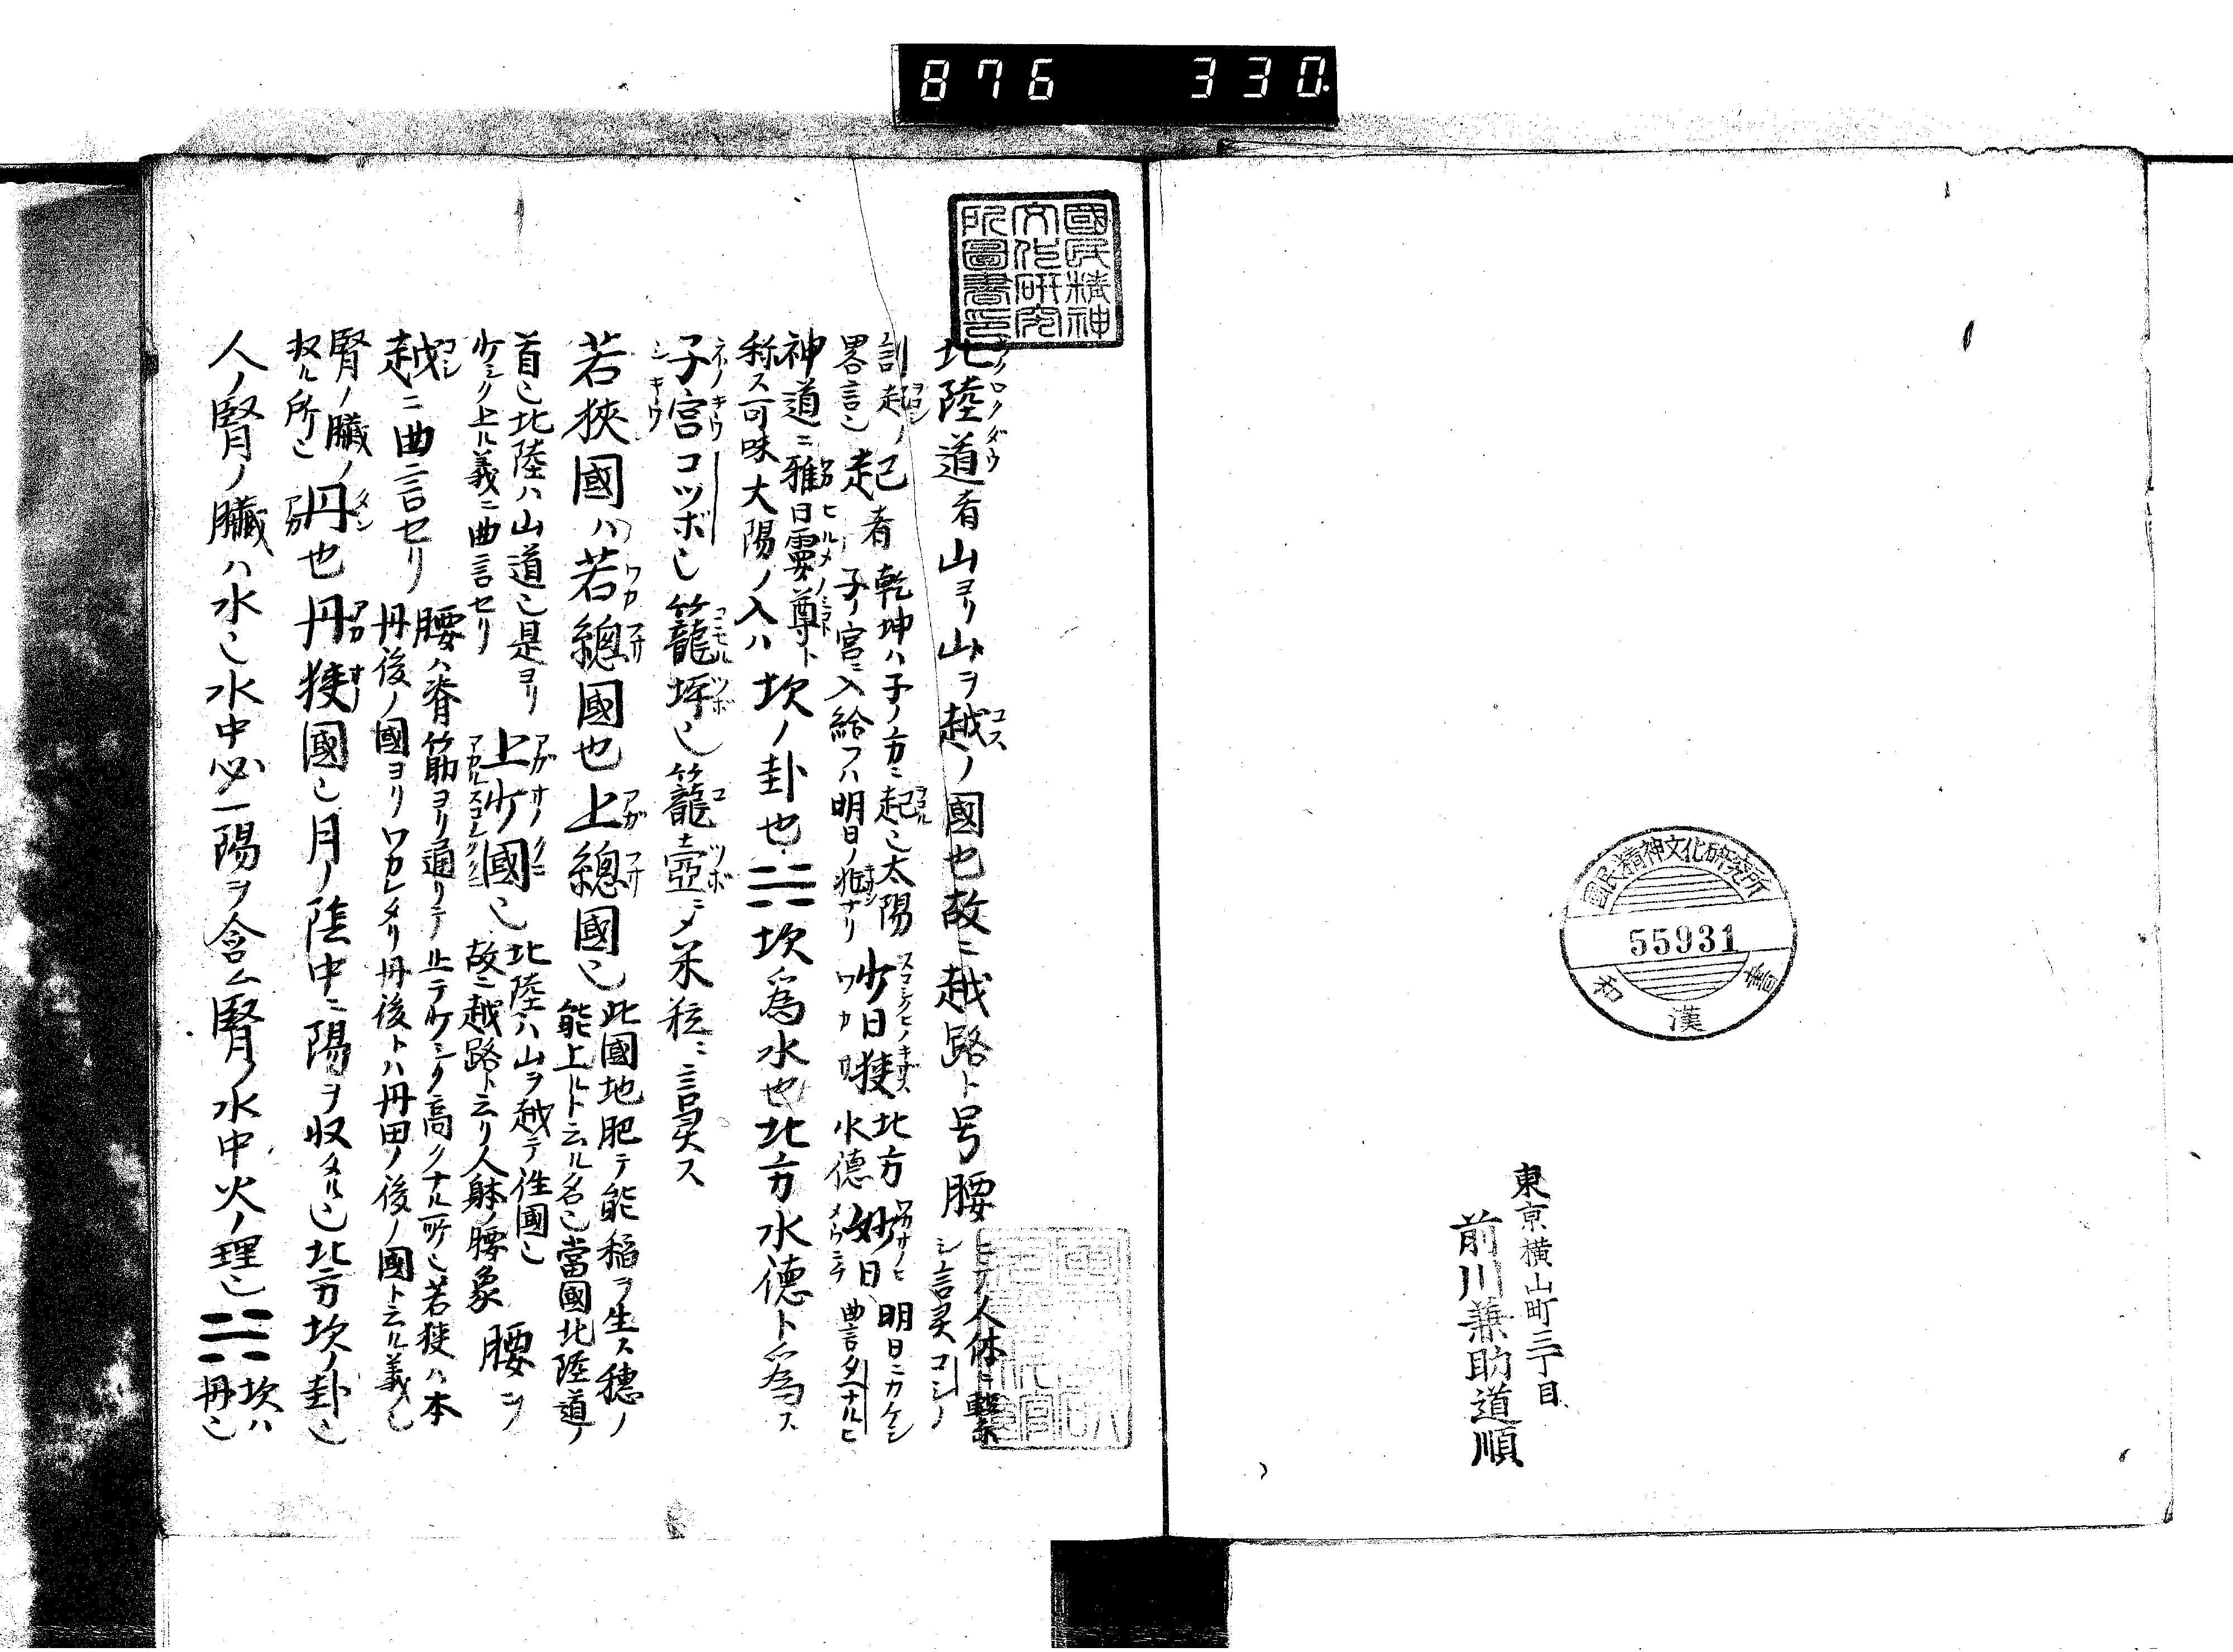 876 330
國民精神文化研究所
55931
和漢書
東京横山町三丁目
前川兼助道順
國民精神
文化研究
所圖書印
北陸道者山ヨリ山ヲ越ノ國也故ニ越路ト号腰
人体ニ繫
シ言灵コシノ
訓起ノ起者乾坤ハ子ノ方ニ起
畧言
太陽
子ノ宮ニ入給フハ明日ノ
少日狹
北方
水德
妙日
明日ニカケシ
曲言タナルヒ
神道ニ雅日霊尊ト
称ス可味大陽ノ入ハ
坎ノ卦也☵坎爲水也北方水德ト爲ス
子宮コツボ也籠坪也籠壺ニメ米粒ニ言灵ス
若狹國ハ若總國也上總國也
此國地肥テ能稲ヲ生ス穂ノ
能上ルト云ル名也當國北陸道ノ
首也北陸ハ山道也是ヨリ
少シク上ル義ニ曲言セリ
上少國也
北陸ハ山ヲ越テ徃國也
故ニ越路ト云リ人躰ノ腰象
腰ヲ
越ニ曲言セリ
腰ハ脊筋ヨリ通リテ止テ少シク高クナル所也若狹ハ本
丹後ノ國ヨリワカレタリ丹後トハ丹田ノ後ノ國ト云ル義也
腎ノ臓ノ
収ル所也
丹也丹狹國也月ノ陰中ニ陽ヲ収タル也北方坎ノ卦也
人ノ腎ノ臓ハ水也水中必一陽ヲ含ム腎ノ水中火ノ理也☵
坎ハ
丹也